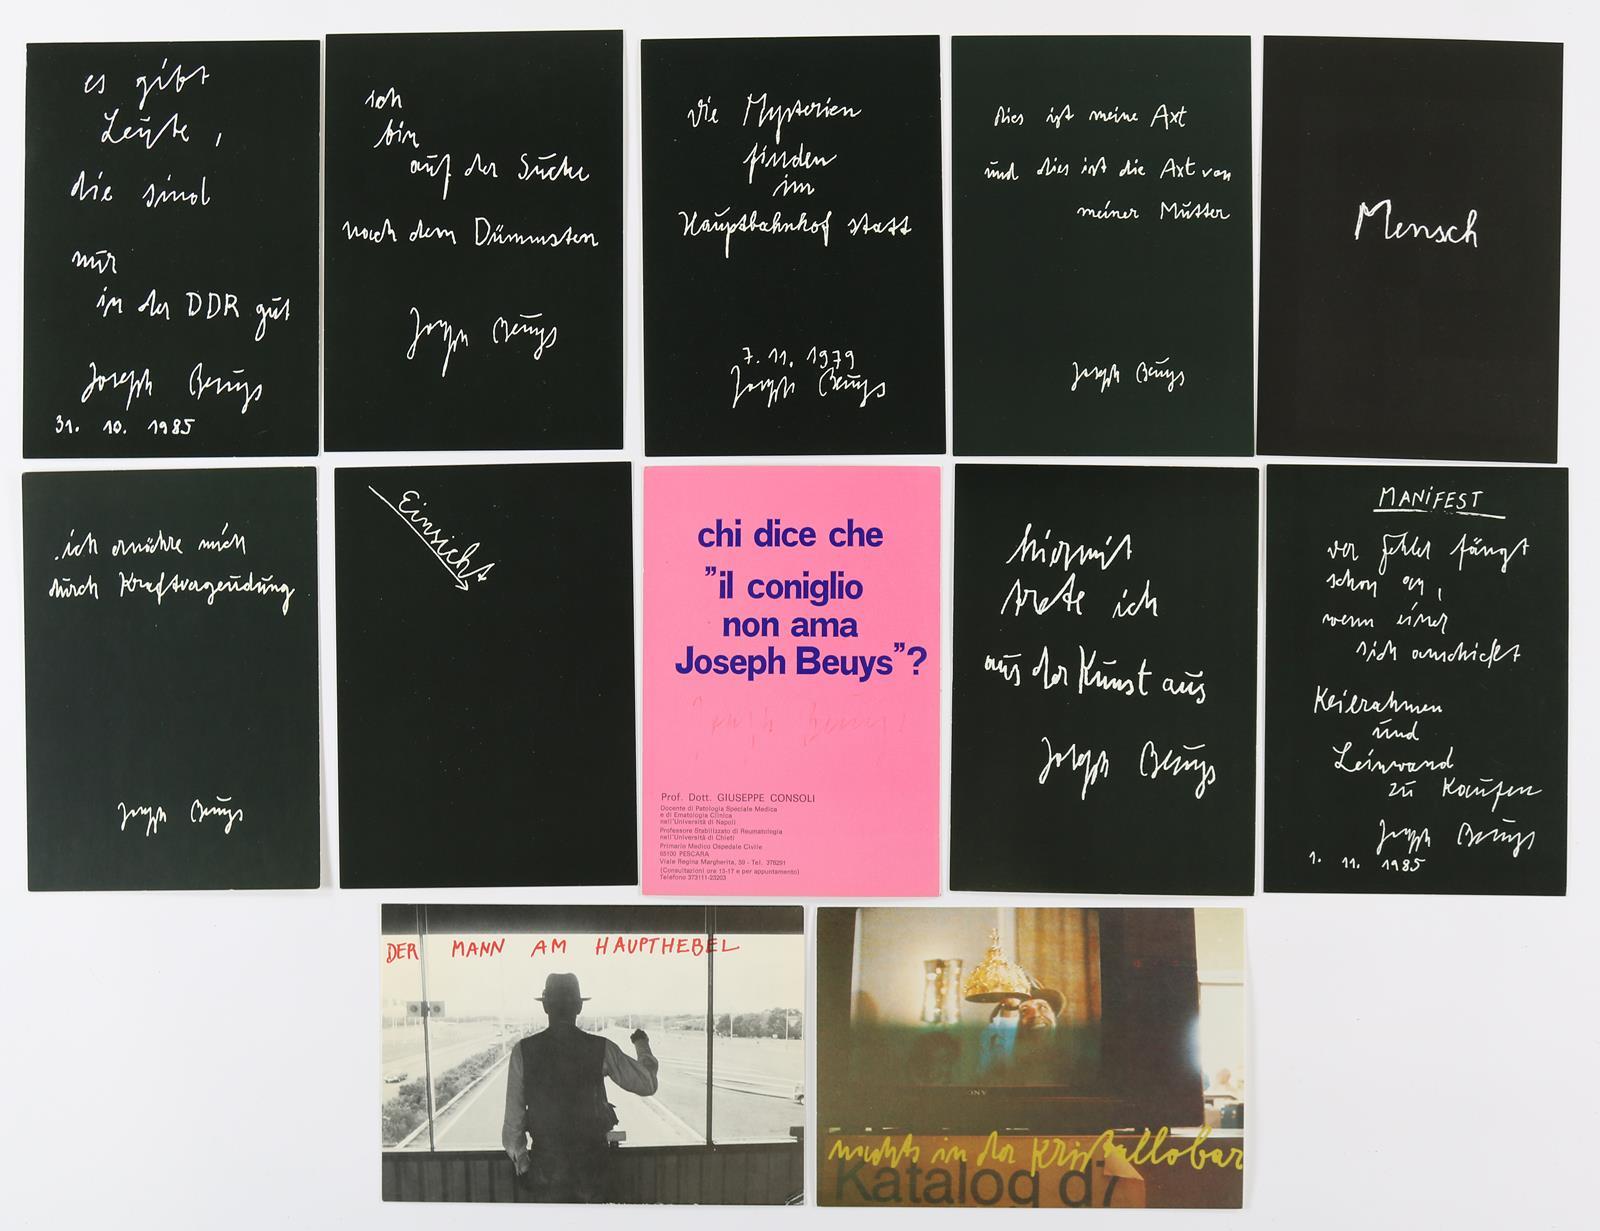 es gibt
Leute,
die sind
nur
in der DDR gut
Joseph Beuys
31. 10. 1985
ich
bin
auf der Suche
nach dem Dümmsten
Joseph Beuys
die Mysterien
finden
im
Hauptbahnhof statt
7. 11. 1979
Joseph Beuys
dies ist meine Axt
und dies ist die Axt von
meiner Mutter
Joseph Beuys
Mensch
ich ernähre mich
durch Kraftvergeudung
Joseph Beuys
Einsicht
chi dice che
"il coniglio
non ama
Joseph Beuys"?
Joseph Beuys
Prof. Dott. GIUSEPPE CONSOLI
Docente di Patologia Speciale Medica
e di Ematologia Clinica
nell'Università di Napoli
Professore Stabilizzato di Reumatologia
nell'Università di Chieti
Primario Medico Ospedale Civile
65100 PESCARA
Viale Regina Margherita, 39 - Tel. 378291
(Consultazioni ore 13-17 e per appuntamento)
Telefono 373111-23203
hiermit
trete ich
aus der Kunst aus
Joseph Beuys
MANiFEST
der Fehler fängt
schon an,
wenn einer
sich anschickt
Keilrahmen
und
Leinwand
zu kaufen
Joseph Beuys
1. 11. 1985
DER MANN AM HAUPTHEBEL
SONY
nichts in der Kristallobar
Katalog d7